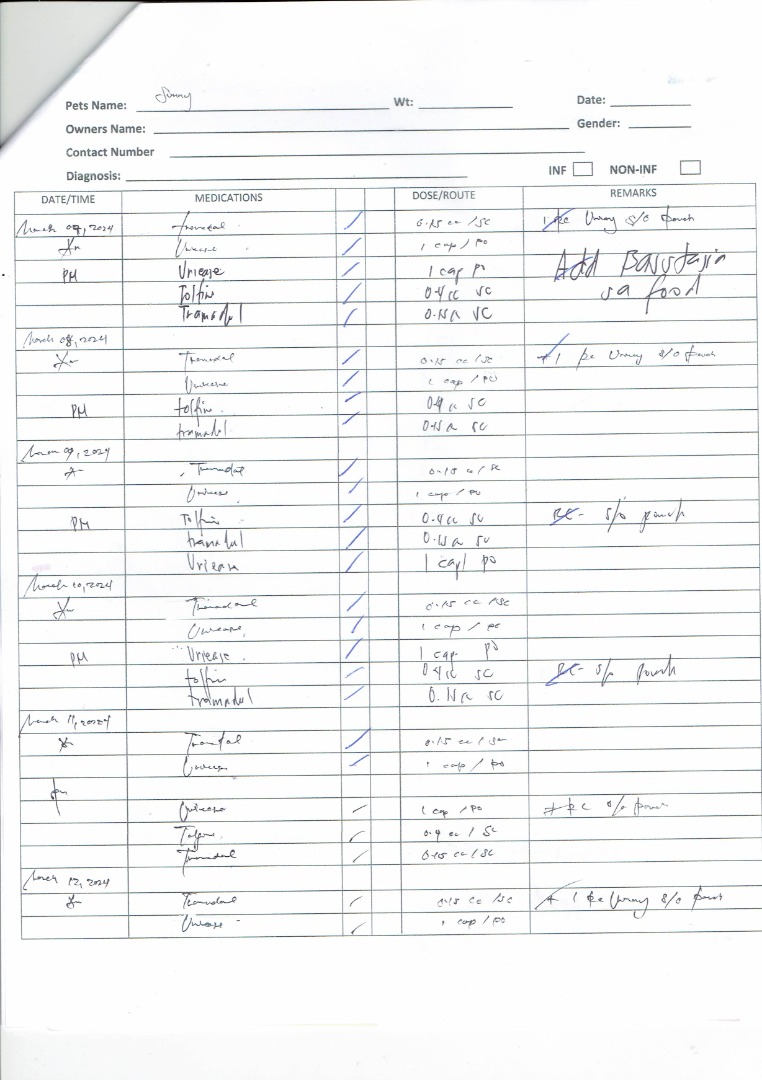 Pets Name: Wt: Date:
Owners Name: Gender:
Contact Number
Diagnosis: INF NON-INF
DATE/TIME MEDICATIONS DOSE/ROUTE REMARKS
March 07, 2024 Tramadal 0.15 cc / SC 1 pc Urinary S/O Pouch
Am Uriease 1 cap / PO
PM Uriease 1 cap po Add
Tolfin 0.4cc SC sa food
Tramadol 0.15cc SC
March 08, 2024
Am Tramadal 0.15 cc / SC 1 pc Urinary S/O Pouch
Uriease 1 cap / PO
PM tolfin 0.4cc SC
tramadol 0.15cc SC
March 09, 2024
Am Tramadal 0.15 cc / SC
Uriease 1 cap / PO
PM Tolfin 0.4cc SC S/O pouch
tramadol 0.15cc SC
Uriease 1 cap po
March 10, 2024
Am Tramadal 0.15 cc / SC
Uriease 1 cap / PO
PM Uriease 1 cap po
tolfin 0.4cc SC S/O pouch
tramadol 0.15cc SC
March 11, 2024
Am Tramadal 0.15 cc / SC
Uriease 1 cap / PO
pm
Uriease 1 cap / PO S/O Pouch
Tolfin 0.4 cc / SC
Tramadal 0.15 cc / SC
March 12, 2024
Am Tramadal 0.15 cc / SC 1 pc Urinary S/O Pouch
Uriease 1 cap / PO